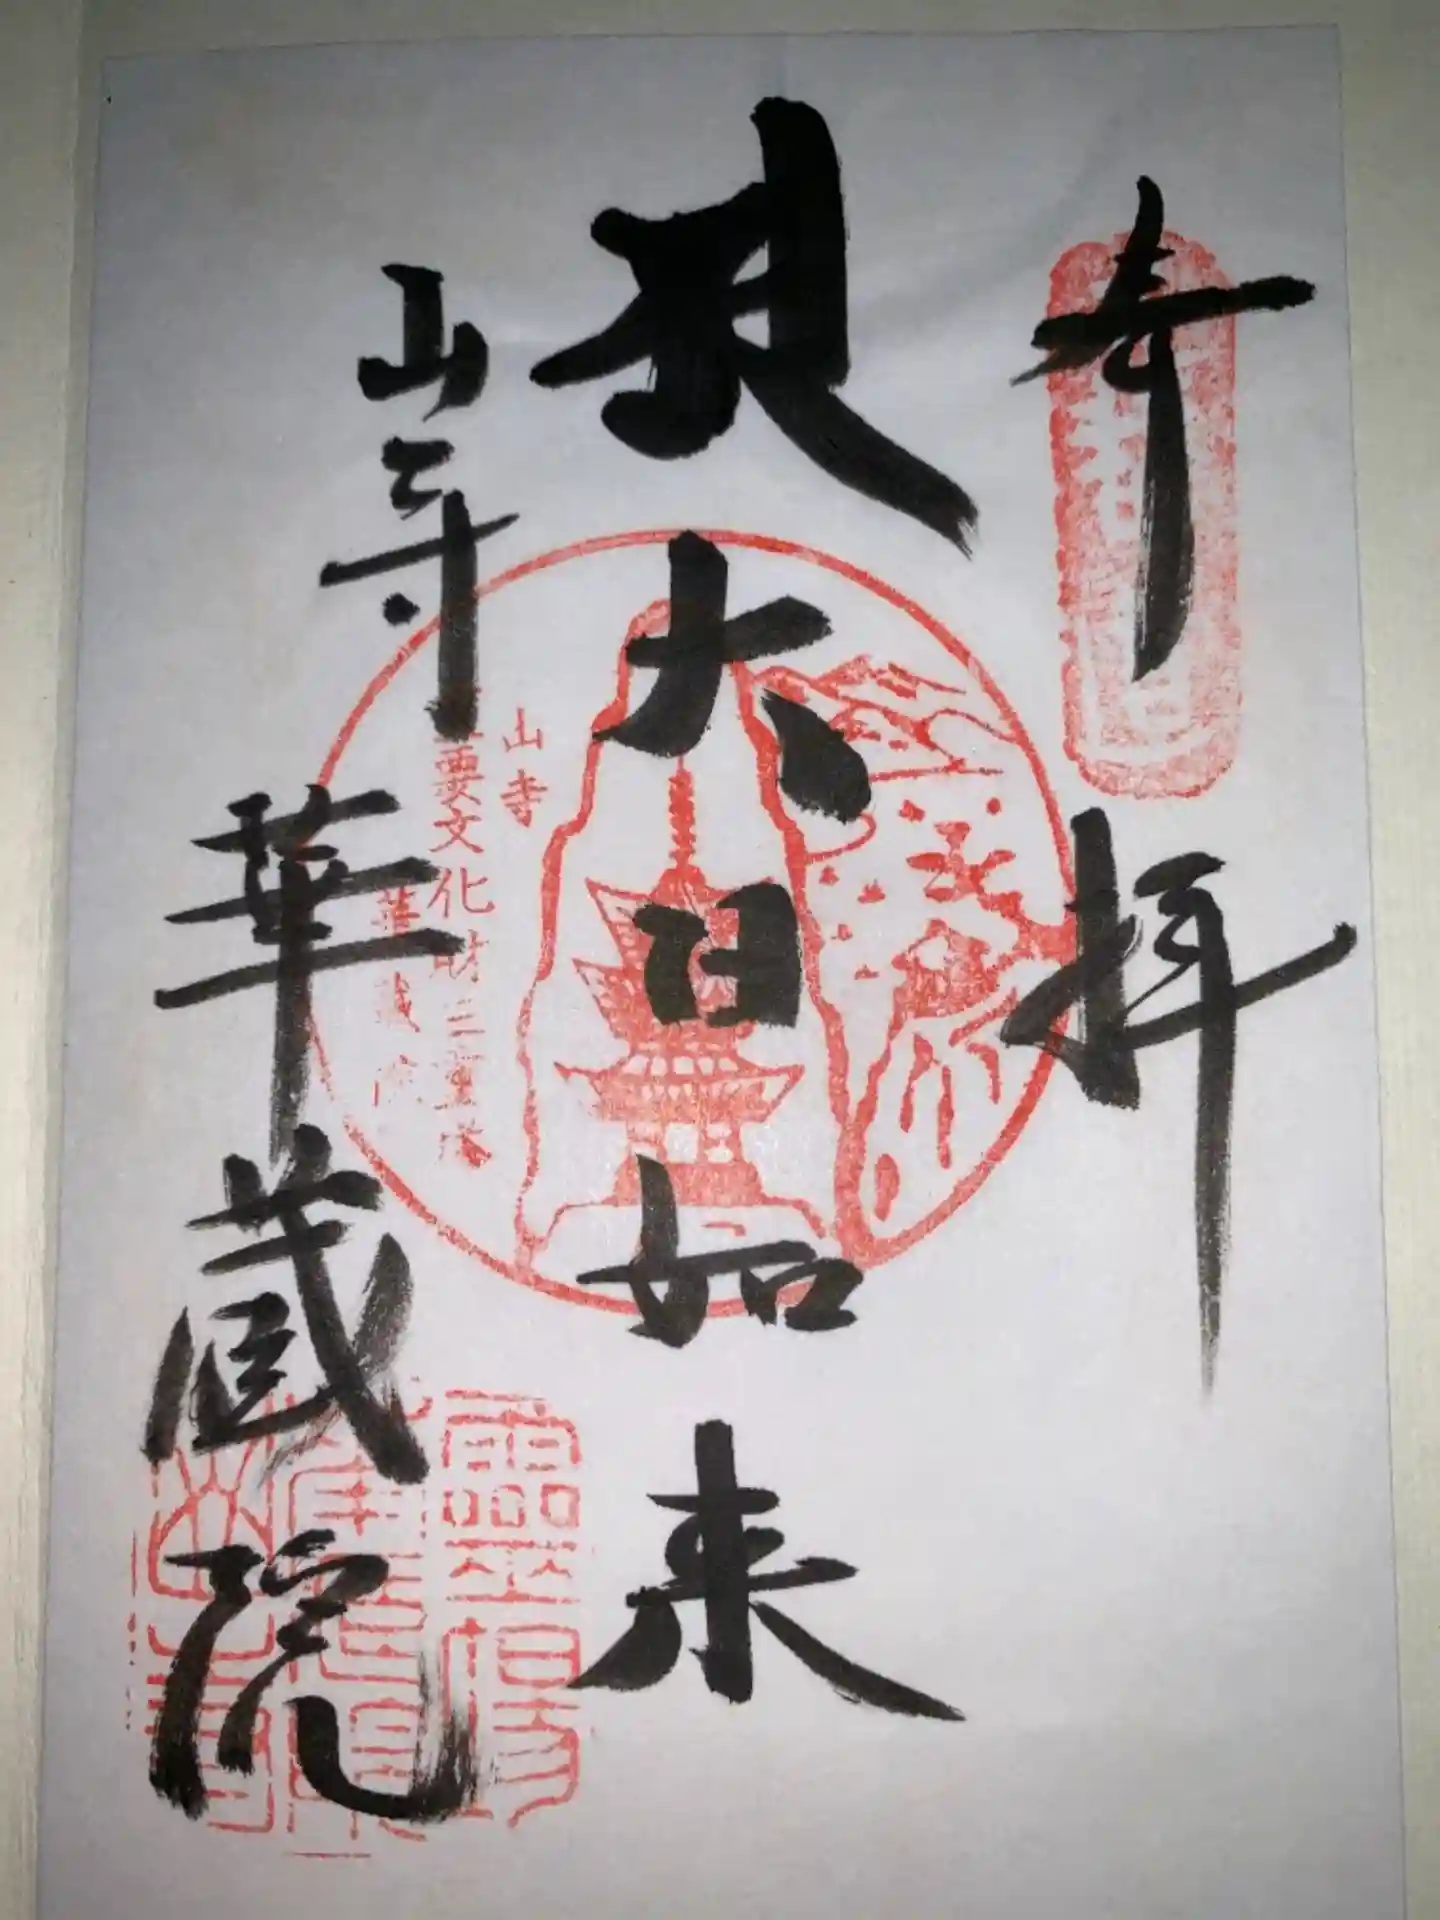 奉拝
大日如来
山寺
華蔵院
山寺
重要文化財三重塔
華蔵院